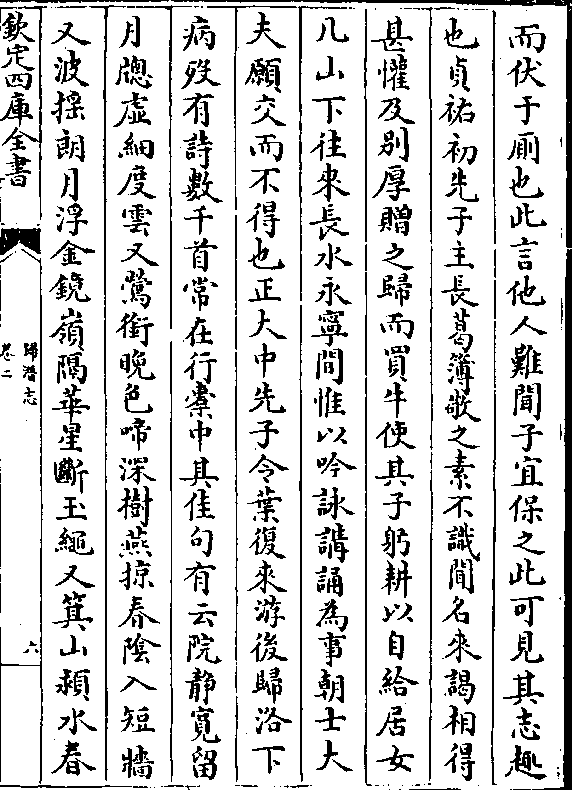 而伏于厠也此言他人難聞子宜保之此可見其志趣
也貞祐初先子主長葛簿敬之素不識聞名來謁相得
甚懽及别厚贈之歸而買牛使其子躬耕以自給居女
几山下往来長水永寧間惟以吟詠講誦為事朝士大
夫願交而不得也正大中先子令葉復來游後歸洛下
病殁有詩數千首常在行槖中其佳句有云院静寛留
月牕虚細度雲又鶯銜晩色啼深樹燕掠春隂入短牆
又波揺朗月浮金鏡嶺隔華星斷玉䋲又箕山潁水春
欽定四庫全書
歸潛志
卷二
六